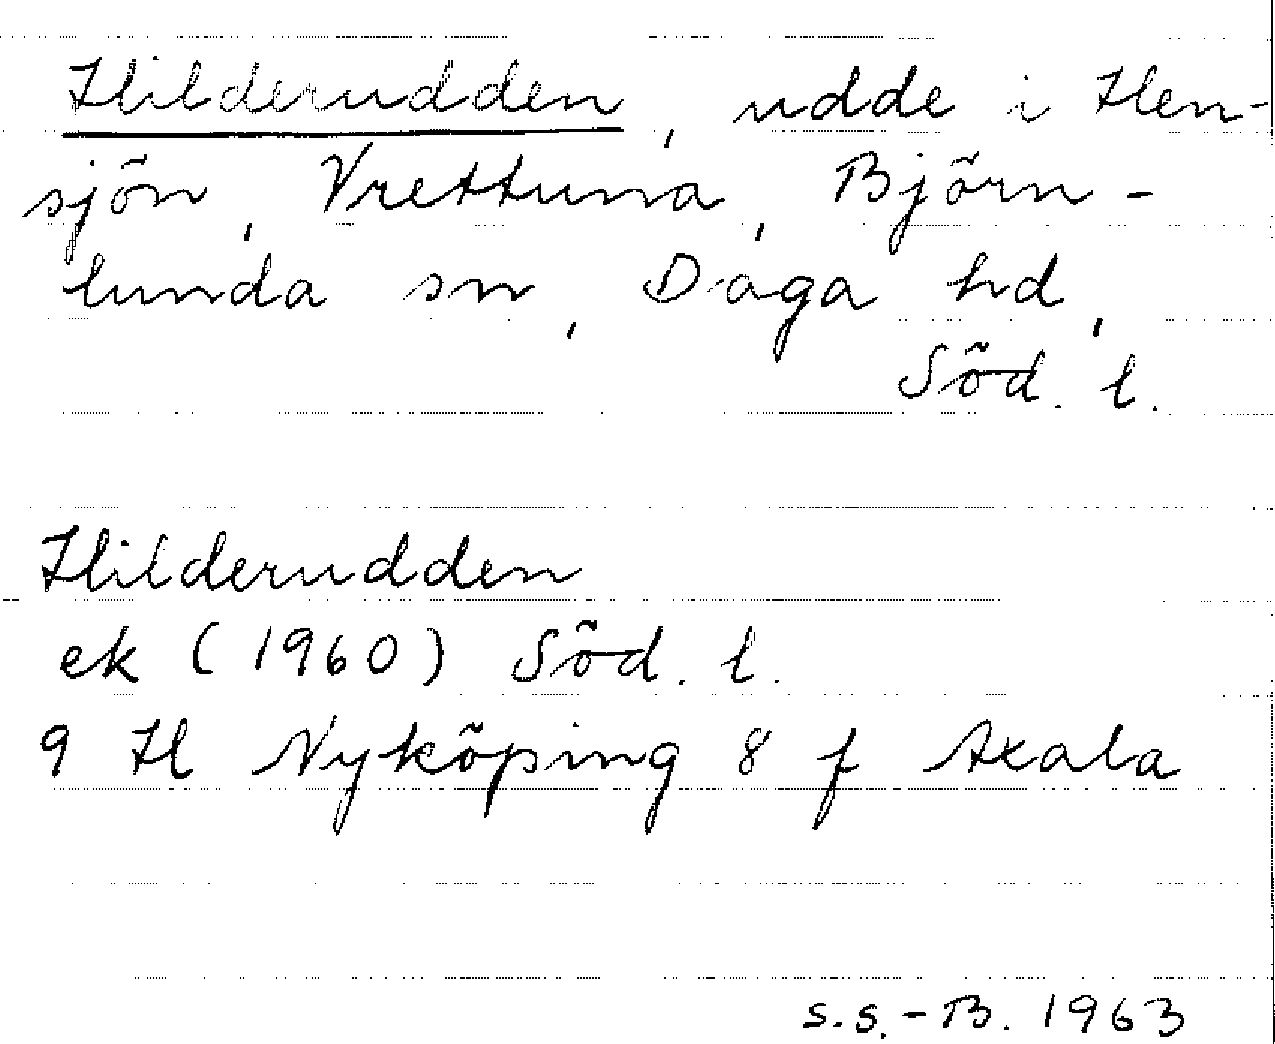 Hilderudden, udde i Hen-
sjön, Vrettuna, Björn-
lunda sn, Daga hd,
Söd. l.
Hilderudden
ek (1960) Söd. l.
9 H Nyköping 8 f Axala
S.S.-B. 1963